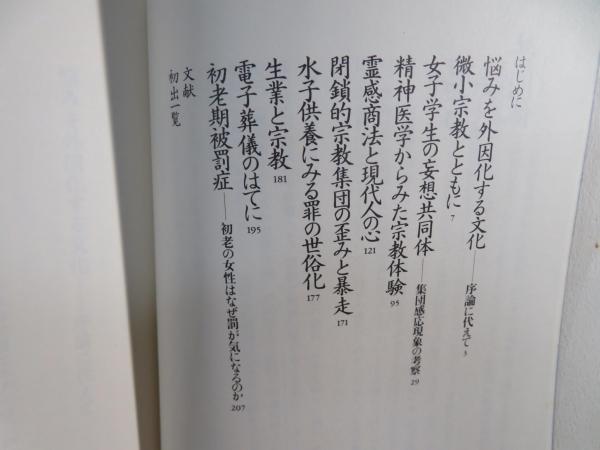 はじめに
悩みを外因化する文化——序論に代えて 3
微小宗教とともに 7
女子学生の妄想共同体——集団感応現象の考察 29
精神医学からみた宗教体験 95
霊感商法と現代人の心 121
閉鎖的宗教集団の歪みと暴走 171
水子供養にみる罪の世俗化 177
生業と宗教 181
電子葬儀のはてに 195
初老期被罰症——初老の女性はなぜ罰が気になるのか 207
文献
初出一覧